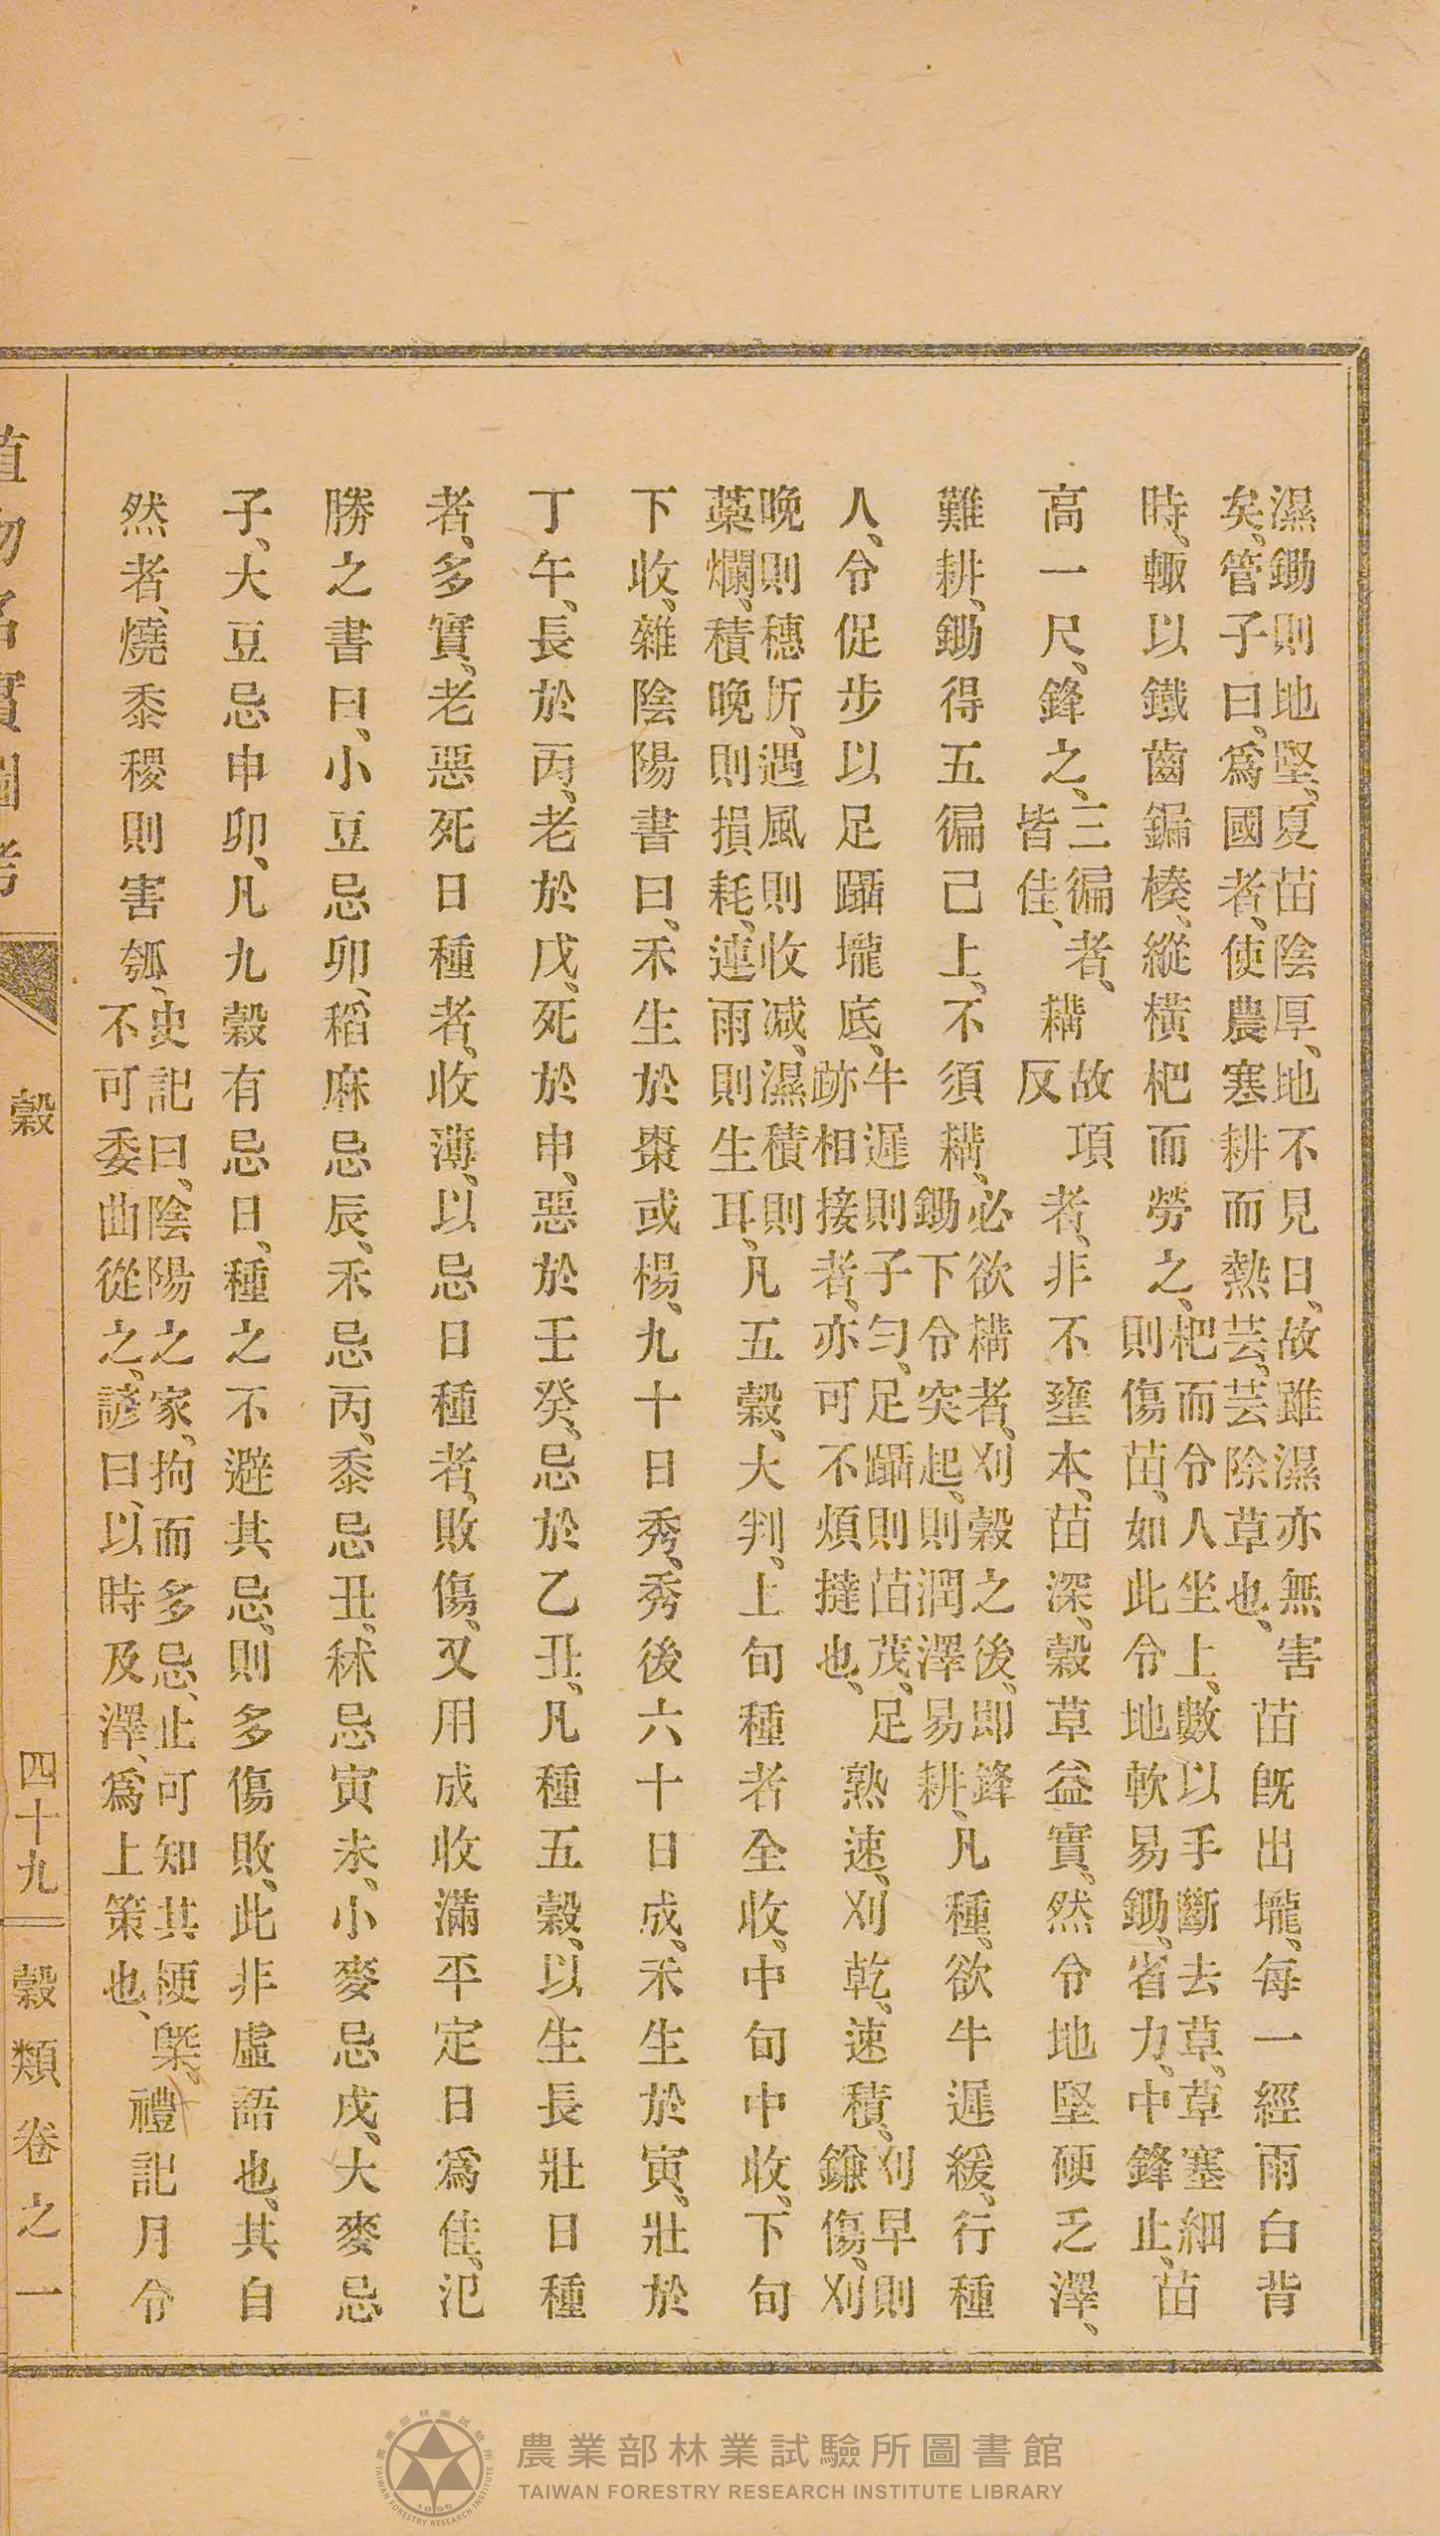 濕鋤則地堅、夏苗陰厚、地不見日、故雖濕亦無害
矣、管子曰、爲國者、使農寒耕而熱芸、芸除草也、
苗旣出壠、每一經雨白背
時、輙以鐵齒鍽楱、縱橫杷而勞之、
杷而令人坐上、數以手斷去草、草塞細
則傷苗、如此令地軟易鋤、省力、中鋒止、
苗
高一尺、鋒之、
三徧者、
皆佳、
耩
故項
反
者、非不壅本、苗深、穀草益實、然令地堅硬乏澤、
難耕、鋤得五徧己上、不須耩、
必欲耩者、刈穀之後、即鋒
鋤下令突起、則潤澤易耕、
凡種、欲牛遲緩、行種
人、令促步以足躡壠底、
牛遲則子勻、足躡則苗茂、足
跡相接者、亦可不煩撻也、
熟速、刈乾、速積、
刈早則
鎌傷、刈
晚則穗折、遇風則收減、濕積則
藁爛、積晚則損耗、連雨則生耳、
凡五穀、大判、上旬種者全收、中旬中收、下旬
下收、雜陰陽書曰、禾生於棗或楊、九十日秀、秀後六十日成、禾生於寅、壯於
丁午、長於丙、老於戊、死於申、惡於壬癸、忌於乙丑、凡種五穀、以生長壯日種
者、多實、老惡死日種者、收薄、以忌日種者、敗傷、又用成收滿平定日爲佳、氾
勝之書曰、小豆忌卯、稻麻忌辰、禾忌丙、黍忌丑、秫忌寅未、小麥忌戌、大麥忌
子、大豆忌申卯、凡九穀有忌日、種之不避其忌、則多傷敗、此非虛語也、其自
然者、燒黍稷則害瓠、
史記曰、陰陽之家、拘而多忌、止可知其梗槩、
不可委曲從之、諺曰、以時及澤、爲上策也、
禮記月令
植物名實圖考
穀
四十九
穀類卷之一
農業部林業試驗所圖書館
TAIWAN FORESTRY RESEARCH INSTITUTE LIBRARY
農業部林業試驗所
TAIWAN FORESTRY RESEARCH INSTITUTE
1896